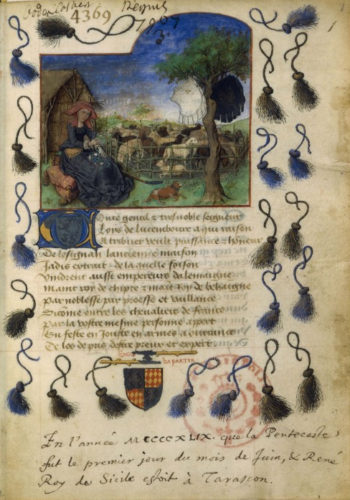 Codex Colbert 4369 Regius
7907
3.
1
gentil & tresnoble seigneur
Loys de lucembourg a qui raison
Atribuer veult puissance & honneur
De losignan lancienne maison
Jadis extrait de la quelle foison
Vindrent aussi empereurs dalemaigne
Maint roy de chipre & maint roy de behaigne
Par noblesse par proesse et vaillance
Renomé entre les chevaliers de france
Par la vostre mesme personne appart
En feste en jouste en armes a oultrance
De los de pris destre preux et expert
DEPARTIR
En l'année MCCCCXLIX. que la Pentecoste
fut le premier jour du mois de Juin, & René
Roy de Sicile estoit à Tarascon.